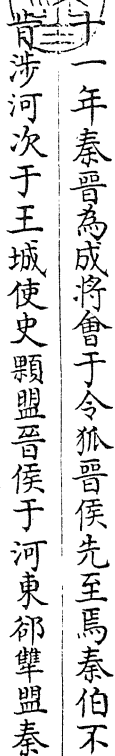 十一年秦晉為成將會于令狐晉侯先至焉秦伯不
肯涉河次于王城使史顆盟晉侯于河東郤犨盟秦